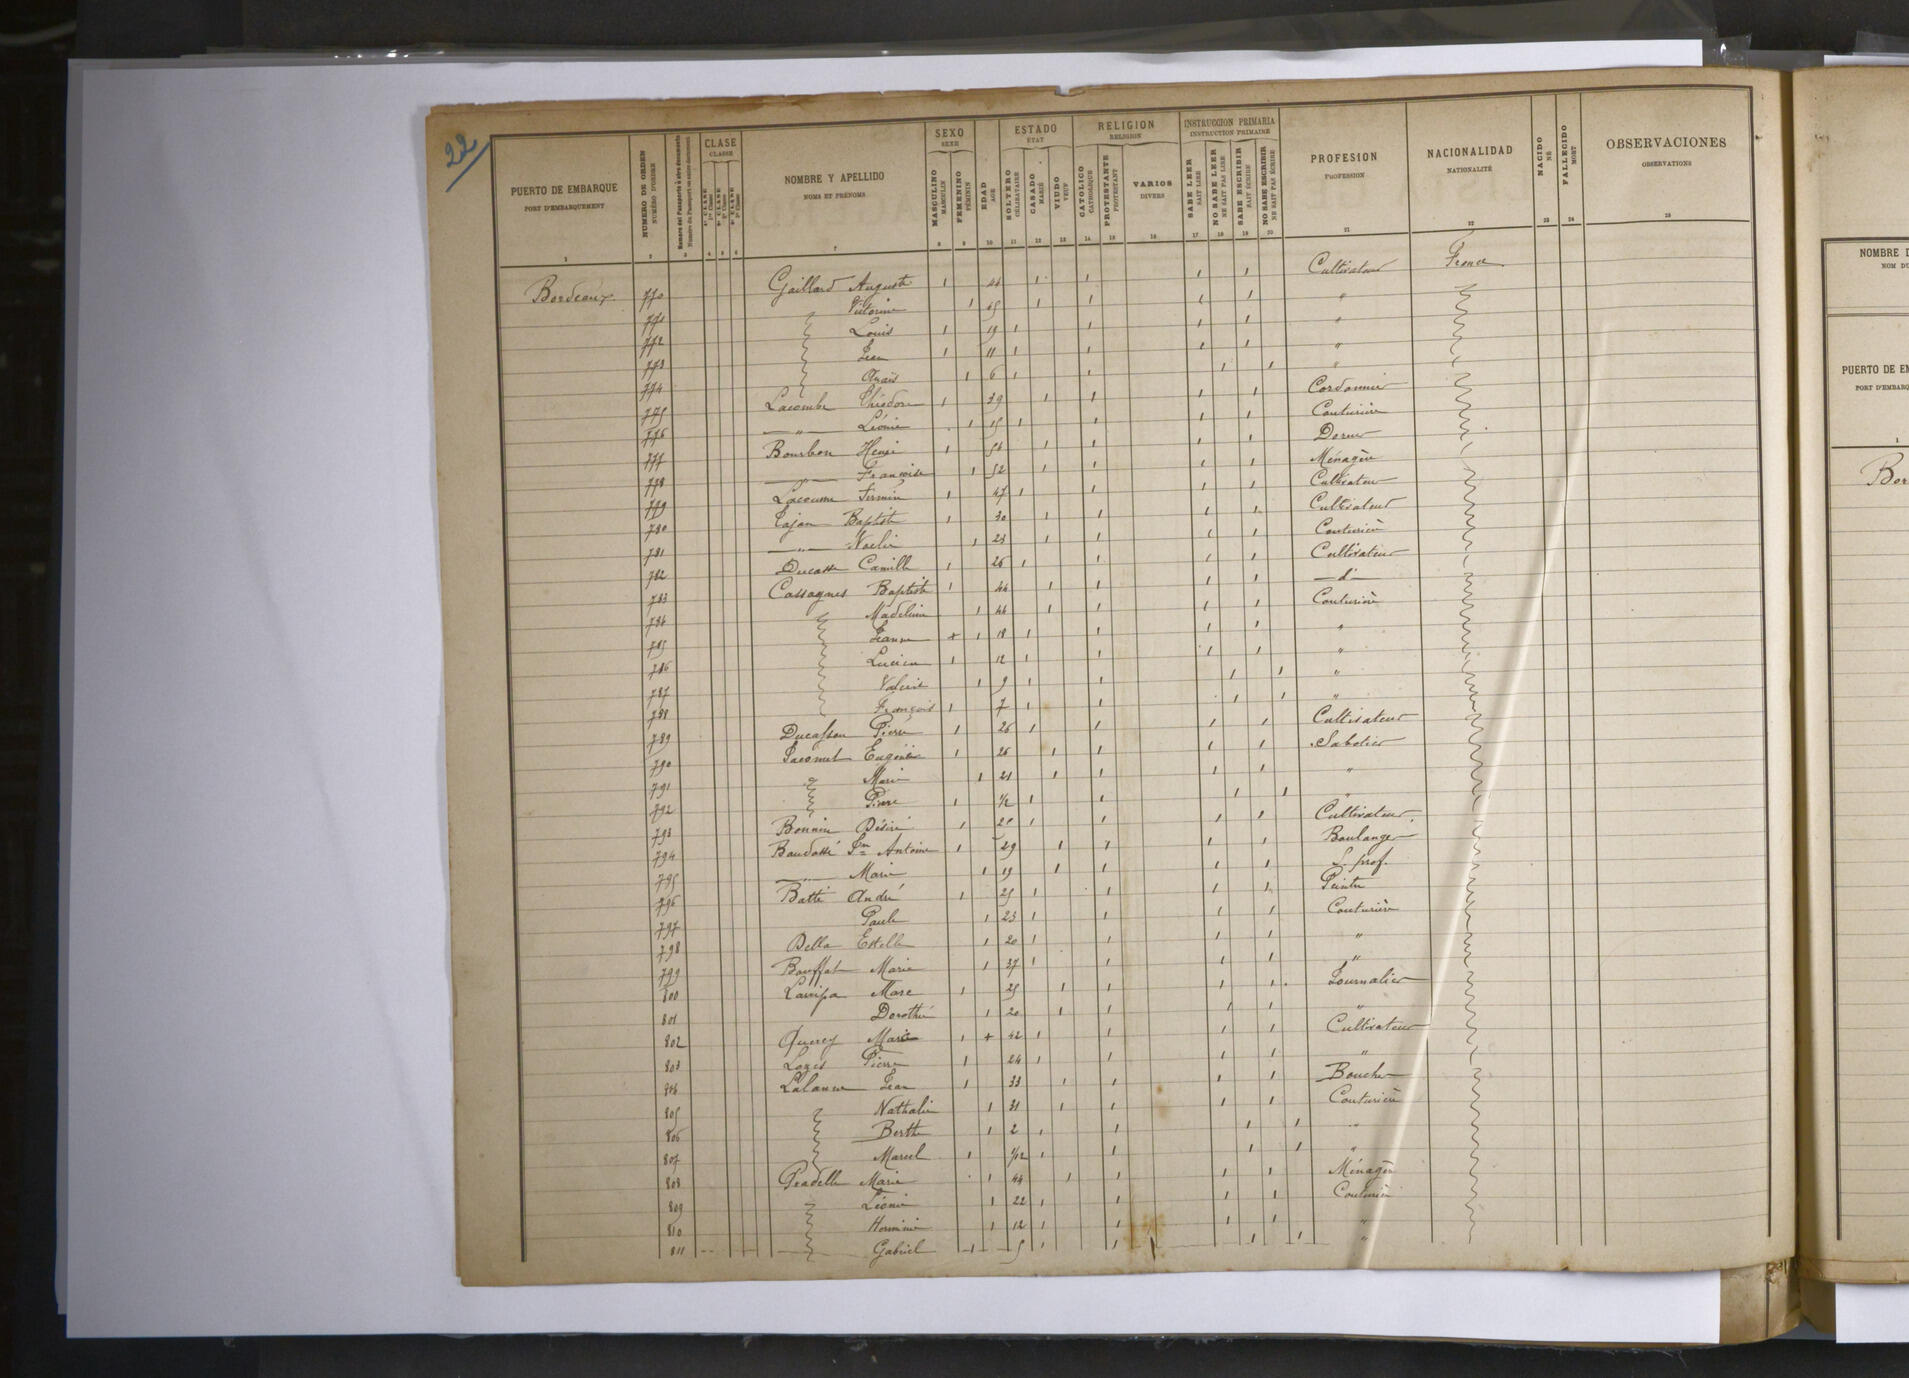 22/
PUERTO DE EMBARQUE
PORT D'EMBARQUEMENT
NUMERO DE ORDEN
NUMÉRO D'ORDRE
Numero del Pasaporte ó otro documento
Numéro du Passeport ou autre document
CLASE
CLASSE
1ª CLASE
1re Classe
2ª CLASE
2e Classe
3ª CLASE
3e Classe
NOMBRE Y APELLIDO
NOMS ET PRÉNOMS
SEXO
SEXE
MASCULINO
MASCULIN
FEMENINO
FÉMININ
EDAD
AGE
ESTADO
ÉTAT
SOLTERO
CÉLIBATAIRE
CASADO
MARIÉ
VIUDO
VEUF
RELIGION
RELIGION
CATOLICO
CATHOLIQUE
PROTESTANTE
PROTESTANT
VARIOS
DIVERS
INSTRUCCION PRIMARIA
INSTRUCTION PRIMAIRE
SABE LEER
SAIT LIRE
NO SABE LEER
NE SAIT PAS LIRE
SABE ESCRIBIR
SAIT ÉCRIRE
NO SABE ESCRIBIR
NE SAIT PAS ÉCRIRE
PROFESION
PROFESSION
NACIONALIDAD
NATIONALITÉ
NACIDO
NÉ
FALLECIDO
MORT
OBSERVACIONES
OBSERVATIONS
1 2 3 4 5 6 7 8 9 10 11 12 13 14 15 16 17 18 19 20 21 22 23 24 25
Bordeaux 770 Gaillard Auguste 1 44 1 1 1 1 Cultivateur France
771 Victorine 1 45 1 1 1 1 "
772 Louis 1 19 1 1 1 1 "
773 Jean 1 11 1 1 1 1 "
774 Anaïs 1 6 1 1 1 1 "
775 Lacombe Théodore 1 39 1 1 1 1 Cordonnier
776 " Léonie 1 15 1 1 1 1 Couturière
777 Bourbon Henri 1 54 1 1 1 1 Doreur
778 " Françoise 1 52 1 1 1 1 Ménagère
779 Lacoume Firmin 1 47 1 1 1 1 Cultivateur
780 Lajan Baptiste 1 30 1 1 1 1 Cultivateur
781 " Noelie 1 23 1 1 1 1 Couturière
782 Ducasse Camille 1 26 1 1 1 1 Cultivateur
783 Cassagnes Baptiste 1 44 1 1 1 1 d°
784 Madeleine 1 44 1 1 1 1 Couturière
785 Jeanne + 1 18 1 1 1 1 "
786 Lucien 1 12 1 1 1 1 "
787 Valerie 1 9 1 1 1 1 "
788 François 1 7 1 1 1 1 "
789 Ducassou Pierre 1 26 1 1 1 1 Cultivateur
790 Jacomet Eugénie 1 26 1 1 1 1 Sabotier
791 " Marie 1 21 1 1 1 1 "
792 Pierre 1 1/2 1 1 1 1 "
793 Bonnin Désiré 1 20 1 1 1 1 Cultivateur
794 Jn Antoine 1 29 1 1 1 1 Boulanger
795 " Marie 1 19 1 1 1 1 S. prof.
796 Batti André 1 25 1 1 1 1 Peintre
797 Paule 1 23 1 1 1 1 Couturière
798 Della Estelle 1 20 1 1 1 1 "
799 Bouffat Marie 1 37 1 1 1 1 "
800 Marc 1 25 1 1 1 1 Journalier
801 Dorothée 1 20 1 1 1 1 "
802 Quercy Marie 1 + 42 1 1 1 1 Cultivateur
803 Lozes Pierre 1 24 1 1 1 1 "
804 Lalanne Jean 1 33 1 1 1 1 Boucher
805 Nathalie 1 31 1 1 1 1 Couturière
806 Berthe 1 2 1 1 1 1 "
807 Marcel 1 1/12 1 1 1 1 "
808 Pradelle Marie 1 44 1 1 1 1 Ménagère
809 Léonie 1 22 1 1 1 1 Couturière
810 Herminie 1 12 1 1 1 1 "
811 Gabriel 1 5 1 1 1 1 "
NOMBRE D
NOM DU
PUERTO DE EM
PORT D'EMBARQ
1
Bor